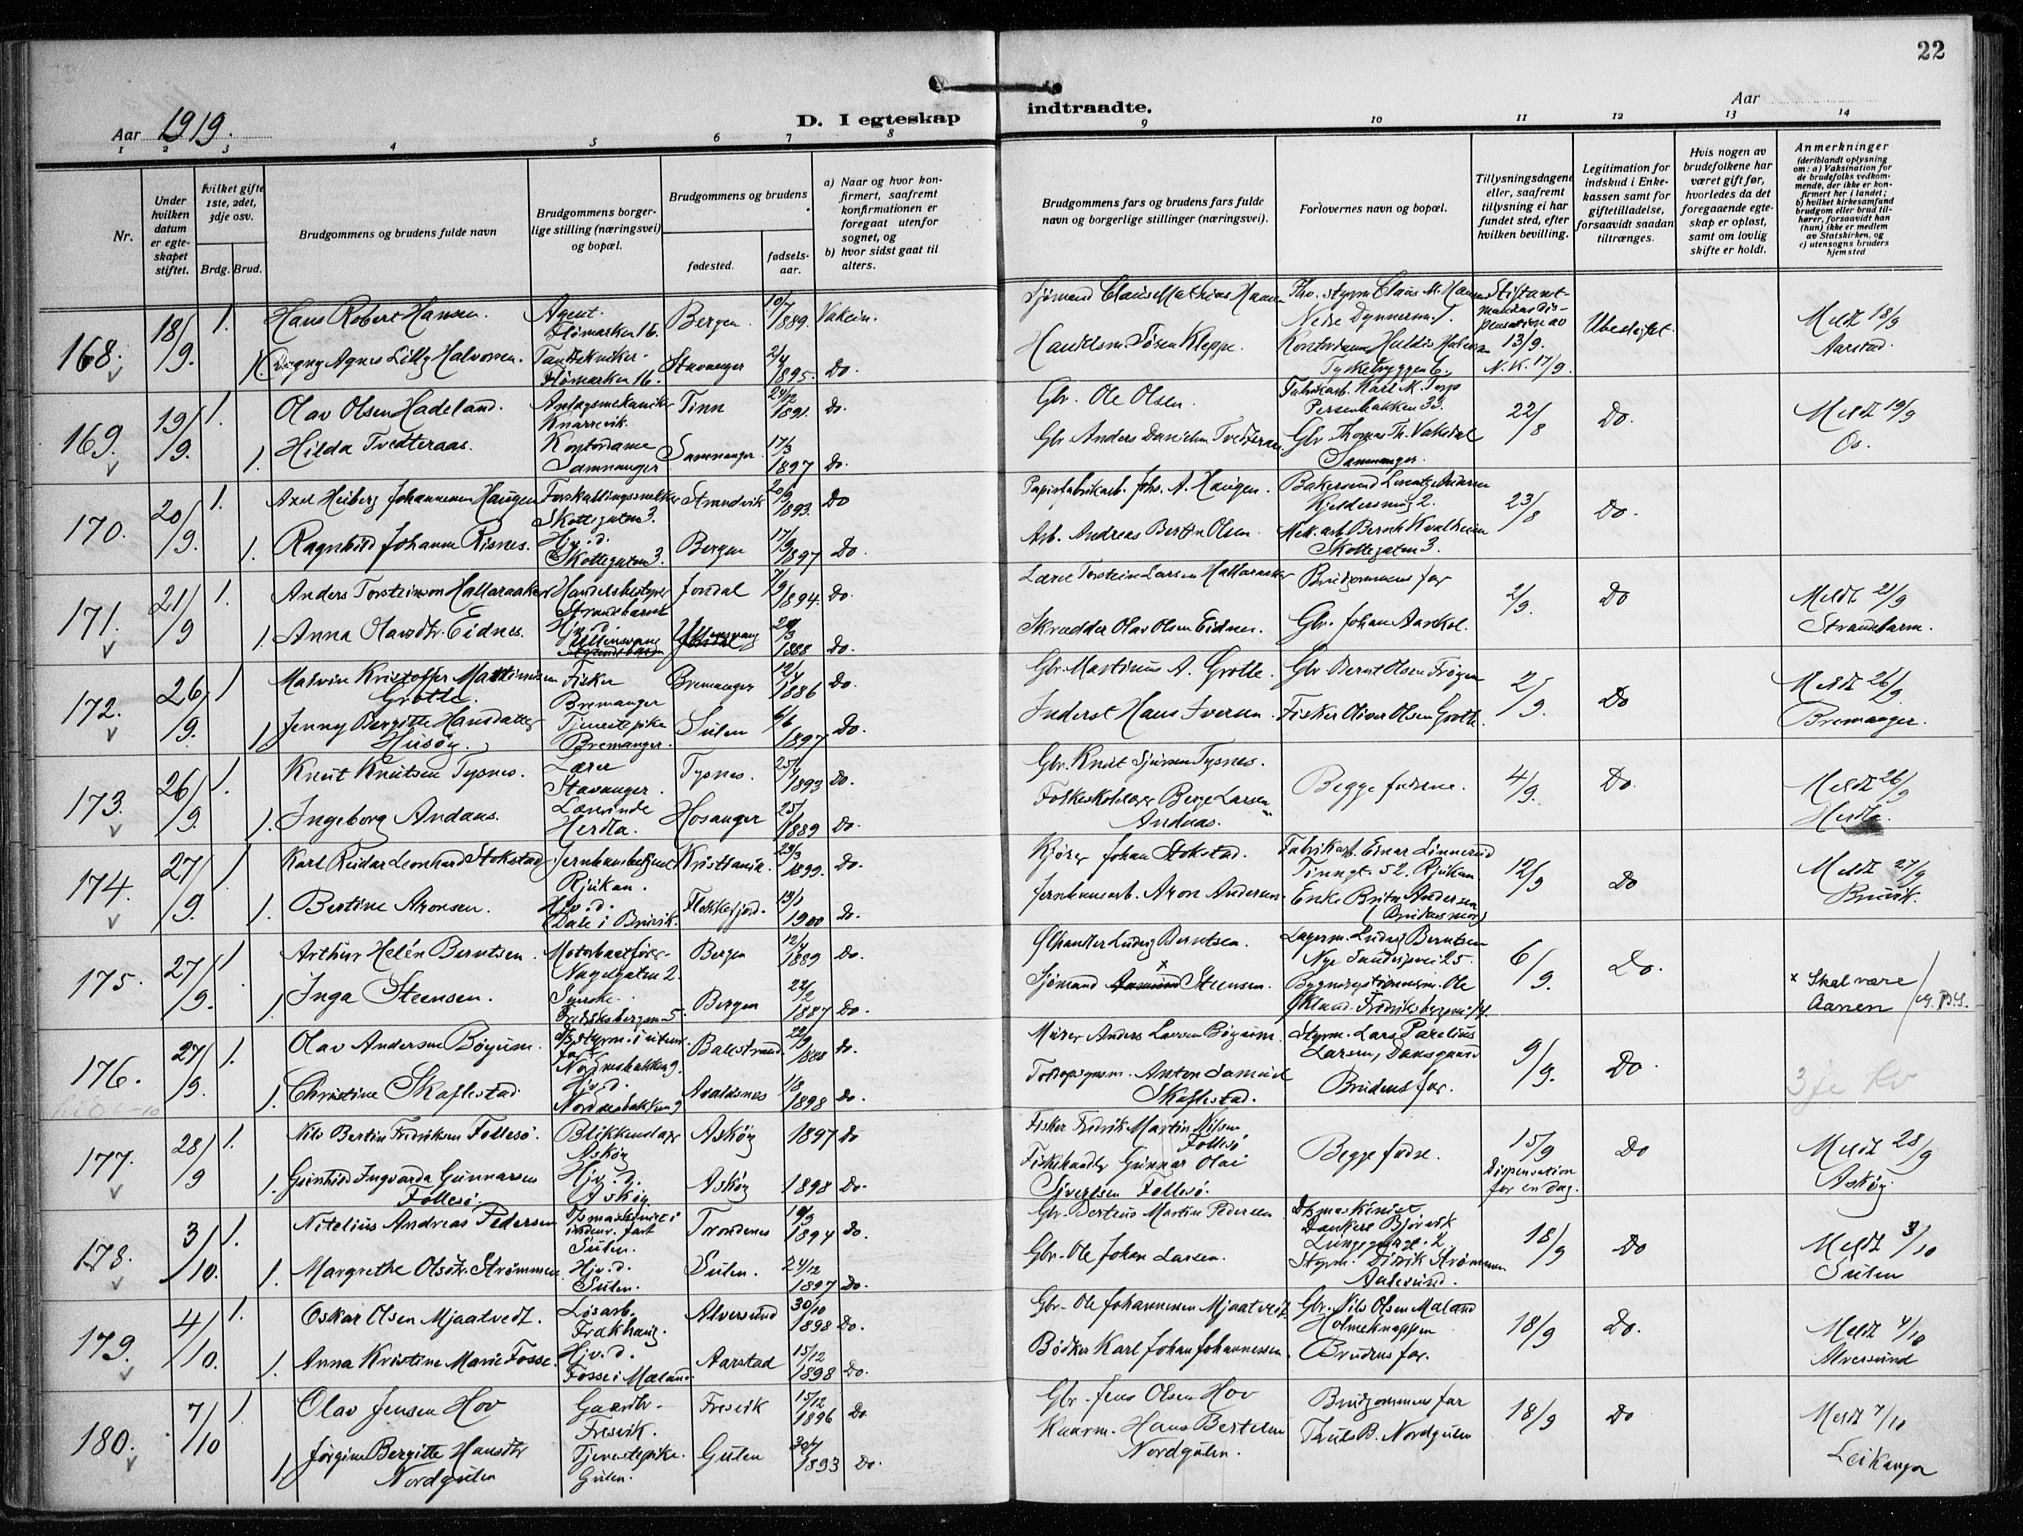 22
Aar 1919.
D. I egteskap indtraadte.
Aar
1 2 3 4 5 6 7 8 9 10 11 12 13 14
Nr.
Under hvilken datum er egteskapet stiftet.
hvilket gifte 1ste, 2det, 3dje osv.
Brdg. Brud.
Brudgommens og brudens fulde navn
Brudgommens borgerlige stilling (næringsvei) og bopæl.
Brudgommens og brudens
fødested.
fødselsaar.
a) Naar og hvor konfirmert, saafremt konfirmationen er foregaat utenfor sognet, og
b) hvor sidst gaat til alters.
Brudgommens fars og brudens fars fulde navn og borgerlige stillinger (næringsvei).
Forlovernes navn og bopæl.
Tillysningsdagene eller, saafremt tillysning ei har fundet sted, efter hvilken bevilling.
Legitimation for indskud i Enkekassen samt for giftetilladelse, forsaavidt saadan tiltrænges.
Hvis nogen av brudefolkene har været gift før, hvorledes da det foregaaende egteskap er opløst, samt om lovlig skifte er holdt.
Anmerkninger
(deriblandt oplysning om: a) Vaksination for de brudefolks vedkommende, der ikke er konfirmert her i landet; b) hvilket kirkesamfund brudgom eller brud tilhører, forsaavidt han (hun) ikke er medlem av Statskirken, og c) utensogns bruders hjemsted
168. 18/9. 1. Hans Robert Hansen. Agent. Flømarken 16. Bergen 10/7 1889. Sjømand Claus Mathias Hansen
1. Agnes Lilly Halvorsen. Flømarken 16. Stavanger 2/4 1895. Do. 13/9. N.K. 17/9. Ubeskjeftet. Meldt 18/9 Aarstad.
169. 19/9. 1. Olav Olsen Hadeland. Knarrevik. Tinn 24/12 1891. Do. Gbr. Ole Olsen. Fabrikarb. Karl M. Torp Persenbakken 33. 22/8 Do. Meldt 19/9 Os.
1. Hilda Tvedteraas. Kontordame Samnanger Samnanger 17/3 1897 Do. Gbr Anders Danielsen Tvedteraas Gbr Thomas Th. Vaksdal Samnanger.
170. 20/9. 1. Axel Heiberg Johannesen Haugen Skottegaten 3. Strandvik 20/9 1893. Do Papirfabrikarb. Johs. A. Haugen. 23/8 Do.
1. Ragnhild Johanne Risnes. Hjv. d. Skottegaten 3. Bergen 17/9 1897 Do. Arb. Andreas Bertin Olsen. Mek. arb Bernh Kvalheim Skottegaten 3.
171. 21/9 1. Anders Torsteinson Hallaraaker Handelsbestyrer Strandbarm Jondal 7/9 1894. Do. Lærer Torstein Larsen Hallaraaker Brudgommens far 2/9. Do Meldt 21/9 Strandbarm.
1. Anna Olavdtr. Eidnes. Hjv. d. Ullensvang Ullensvang 29/3 1888 Do. Skrædder Olav Olsen Eidnes. Gbr. Johan Aarhol.
172. 26/9. 1 Malvin Kristoffer Martinussen Grotle. Fisker Bremanger Bremanger 12/4 1886 Do. Gbr. Martinus A. Grotle. Gbr Bernt Olsen Frøyen 2/9. Do Meldt 26/9 Bremanger.
1 Jenny Bergitte Hansdatter Husøy. Tjenestepike Bremanger. Sulen 6/6 1897 Do. Inderst Hans Iversen. Fisker Oliver Olsen Grotle.
173. 26/9. 1. Knut Knutsen Tysnes. Lærer Stavanger. Tysnes. 25/4 1893 Do. Gbr. Knut Sjursen Tysnes. Begge fædrene. 4/9. Do Meldt 26/9 Herdla.
1. Ingeborg Andaas. Lærerinde Herdla. Hosanger 25/1 1889 Do. Folkeskolelærer Berge Larsen Andaas.
174. 27/9. 1 Karl Reidar Leonhard Stokstad Jernbanebetjent Rjukan. Kristiania 29/3 1899. Do. Kjører Johan Stokstad. Fabrikarb. Einar Linnerud Tinngt. 52. Rjukan 12/9 Do Meldt 27/9 Bruvik.
1. Bertine Aronsen. Hjv. d. Dale i Bruvik. Flekkefjord. 13/1 1900 Do. Jernbanearb. Aron Andersen Enke Brita Andersen (Brudens mor)
175. 27/9. 1 Arthur Helén Berntsen. Motorbaatfører Nagelgaten 2. Bergen 12/4 1889 Do. Ludvig Berntsen. Lagerm. Ludvig Berntsen Nye Sandviksvei 25. 6/9. Do. x Skal være Aanen
1 Inga Steensen. Syerske. Fredriksbergsm 5 Bergen 22/2 1887 Do. Sjømand x Steensen.
176. 27/9. 1. Olav Andersen Bøyum. Styrm. i utenr. fart Nordnesbakken 9. Balestrand 1888 Do. Murer Anders Larsen Bøyum. Styrm. Lars Parelius Larsen, Damsgaard 9/9. Do. 3je kv
1. Christine Skaflestad Hjv. d. Nordnesbakken 9 Avaldsnes 1/8 1898 Do. Anton Samuel Skaflestad. Brudens far.
177. 28/9 1. Nils Bertin Fredriksen Follesø. Blikkenslager Askøy Askøy 1897 Do Fisker Fredrik Martin Nilsen Follesø Begge fædre. 15/9 Dispensation for en dag. Do Meldt 28/9 Askøy
1. Gunhild Ingvarda Gunnarsen Follesø. Hjv. d. Askøy Askøy 1898 Do. Fiskehandler Gunnar Olai Sivertsen Follesø.
178. 3/10. 1. Nitelius Andreas Pedersen D/smaskinist i indenr. fart Sulen. Trondenes 19/3 1894 Do. Gbr Berteus Martin Pedersen D/smaskinist Dankert Bjørvik 18/9 Do Meldt 3/10 Sulen
1. Margrethe Olsdtr. Strømmen. Hjv. d. Sulen. Sulen. 24/12 1897 Do. Gbr. Ole Johan Larsen. Styrm. Didrik Strømmen Aalesund.
179. 4/10. 1. Oskar Olsen Mjaatvedt. Løsarb. Frakhaug. Alversund 30/10 1898 Do. Gbr. Ole Johannessen Mjaatvedt Gbr. Nils Olsen Maland Holmeknappen 18/9 Do. Meldt 4/10 Alversund
1. Anna Kristine Marie Fosse. Hjv. d. Fosse i Mæland Aarstad 15/12 1898 Do. Bødker Karl Johan Johannessen. Brudens far.
180. 7/10 1 Olav Jensen Hov Gaardbr. Fresvik. Fresvik 15/12 1896 Do Gbr. Jens Olsen Hov Brudgommens far 18/9 Do Meldt 7/10 Leikanger
1 Jørgine Bergitte Hansdtr Nordgulen Tjenestepike. Gulen. Gulen 30/4 1893 Do. Kaarm. Hans Bertelsen Nordgulen. Truls B. Nordgulen